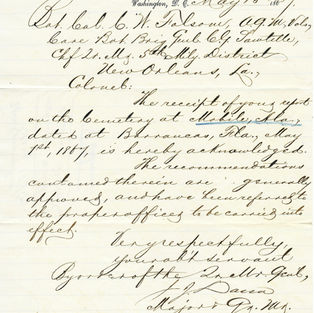 Washington, D. C. May 13 1867.
Bvt. Col. C. W. Folsom, A.Q.M. Vols.,
Care Bvt. Brig Genl. C. G. Sawtelle,
Chf Qr. Mr. 5th Mly. District
New Orleans, La.,
Colonel:
The receipt of your report
on the Cemetery at Mobile, Ala.,
dated at Barrancas, Fla., May
1st, 1867, is hereby acknowledged.
The recommendations
contained therein are generally
approved, and have been referred to
the proper offices to be carried into
effect.
Very respectfully,
your obt servant
By order of the Qr. Mr. Genl,
J. J. Dana
Major & Qr. Mr.